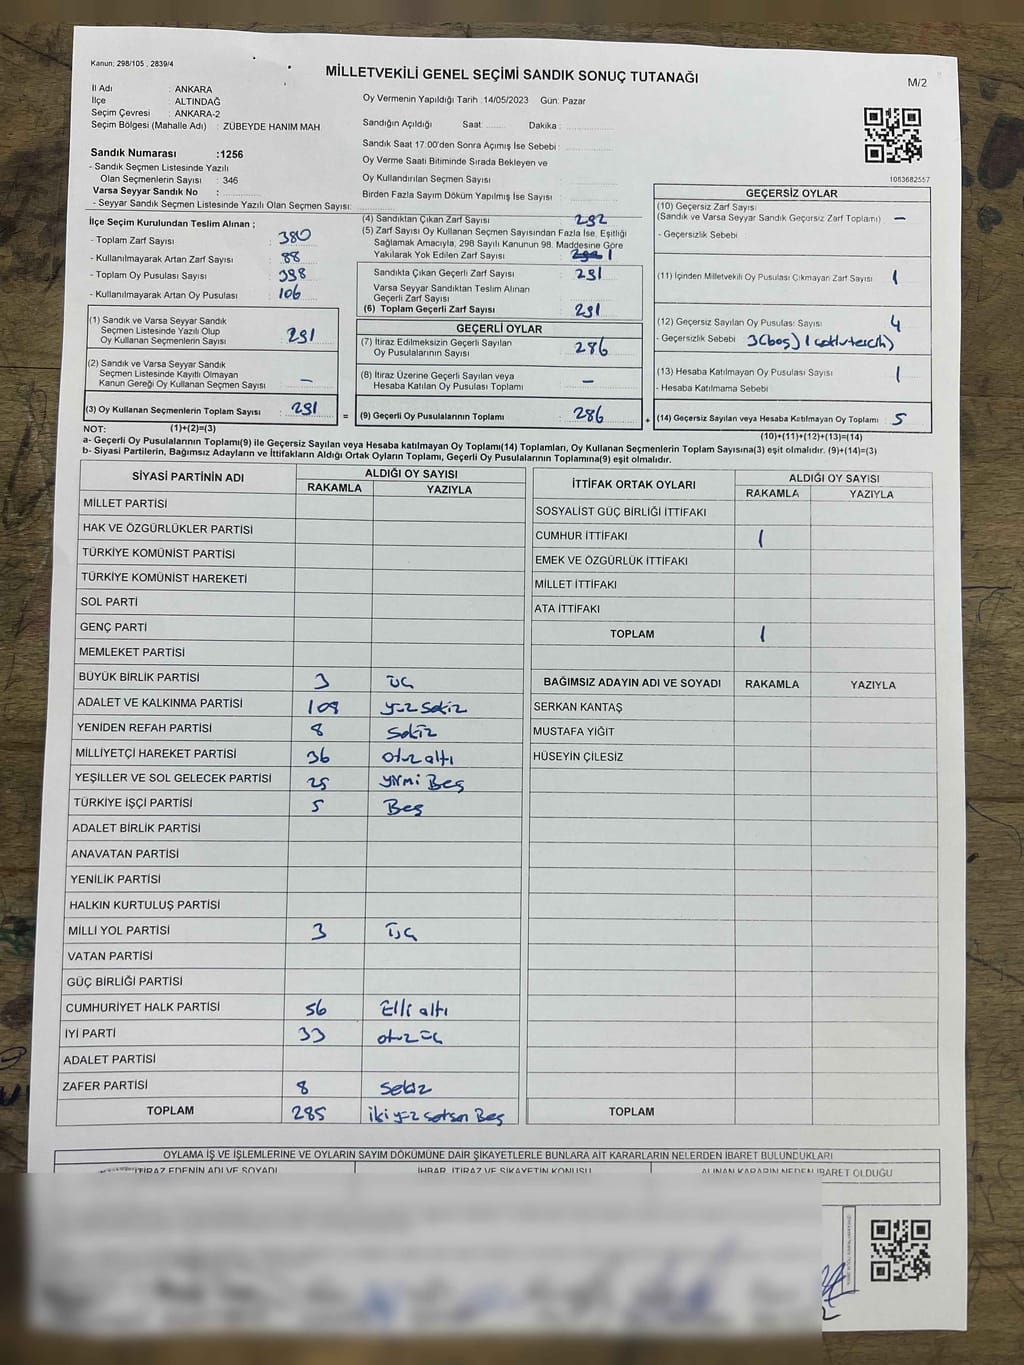 Kanun: 298/105 , 2839/4
MİLLETVEKİLİ GENEL SEÇİMİ SANDIK SONUÇ TUTANAĞI
M/2
İl Adı : ANKARA
İlçe : ALTINDAĞ
Seçim Çevresi : ANKARA-2
Seçim Bölgesi (Mahalle Adı) : ZÜBEYDE HANIM MAH
Sandık Numarası :1256
- Sandık Seçmen Listesinde Yazılı
Olan Seçmenlerin Sayısı : 346
Varsa Seyyar Sandık No :
- Seyyar Sandık Seçmen Listesinde Yazılı Olan Seçmen Sayısı:
Oy Vermenin Yapıldığı Tarih :14/05/2023 Gün: Pazar
Sandığın Açıldığı Saat ........ Dakika :
Sandık Saat 17.00'den Sonra Açımış İse Sebebi :
Oy Verme Saati Bitiminde Sırada Bekleyen ve
Oy Kullandırılan Seçmen Sayısı :
Birden Fazla Sayım Döküm Yapılmış İse Sayısı :
1083682557
İlçe Seçim Kurulundan Teslim Alınan ;
- Toplam Zarf Sayısı : 380
- Kullanılmayarak Artan Zarf Sayısı : 88
- Toplam Oy Pusulası Sayısı : 398
- Kullanılmayarak Artan Oy Pusulası : 106
(1) Sandık ve Varsa Seyyar Sandık
Seçmen Listesinde Yazılı Olup
Oy Kullanan Seçmenlerin Sayısı : 291
(2) Sandık ve Varsa Seyyar Sandık
Seçmen Listesinde Kayıtlı Olmayan
Kanun Gereği Oy Kullanan Seçmen Sayısı : –
(3) Oy Kullanan Seçmenlerin Toplam Sayısı : 291
(4) Sandıktan Çıkan Zarf Sayısı : 292
(5) Zarf Sayısı Oy Kullanan Seçmen Sayısından Fazla İse, Eşitliği
Sağlamak Amacıyla, 298 Sayılı Kanunun 98. Maddesine Göre
Yakılarak Yok Edilen Zarf Sayısı : 1
Sandıkta Çıkan Geçerli Zarf Sayısı : 291
Varsa Seyyar Sandıktan Teslim Alınan
Geçerli Zarf Sayısı :
(6) Toplam Geçerli Zarf Sayısı : 291
GEÇERLİ OYLAR
(7) İtiraz Edilmeksizin Geçerli Sayılan
Oy Pusulalarının Sayısı : 286
(8) İtiraz Üzerine Geçerli Sayılan veya
Hesaba Katılan Oy Pusulası Toplamı : –
= (9) Geçerli Oy Pusulalarının Toplamı : 286
GEÇERSİZ OYLAR
(10) Geçersiz Zarf Sayısı
(Sandık ve Varsa Seyyar Sandık Geçersiz Zarf Toplamı) : –
- Geçersizlik Sebebi :
(11) İçinden Milletvekili Oy Pusulası Çıkmayan Zarf Sayısı : 1
(12) Geçersiz Sayılan Oy Pusulası Sayısı : 4
- Geçersizlik Sebebi : 3(boş) 1(çoklu tercih)
(13) Hesaba Katılmayan Oy Pusulası Sayısı : 1
- Hesaba Katılmama Sebebi :
+ (14) Geçersiz Sayılan veya Hesaba Katılmayan Oy Toplamı : 5
NOT: (1)+(2)=(3)
(10)+(11)+(12)+(13)=(14)
a- Geçerli Oy Pusulalarının Toplamı(9) ile Geçersiz Sayılan veya Hesaba katılmayan Oy Toplamı(14) Toplamları, Oy Kullanan Seçmenlerin Toplam Sayısına(3) eşit olmalıdır. (9)+(14)=(3)
b- Siyasi Partilerin, Bağımsız Adayların ve İttifakların Aldığı Ortak Oyların Toplamı, Geçerli Oy Pusulalarının Toplamına(9) eşit olmalıdır.
SİYASİ PARTİNİN ADI ALDIĞI OY SAYISI
RAKAMLA YAZIYLA
MİLLET PARTİSİ
HAK VE ÖZGÜRLÜKLER PARTİSİ
TÜRKİYE KOMÜNİST PARTİSİ
TÜRKİYE KOMÜNİST HAREKETİ
SOL PARTİ
GENÇ PARTİ
MEMLEKET PARTİSİ
BÜYÜK BİRLİK PARTİSİ 3 üç
ADALET VE KALKINMA PARTİSİ 108 yüz sekiz
YENİDEN REFAH PARTİSİ 8 sekiz
MİLLİYETÇİ HAREKET PARTİSİ 36 otuz altı
YEŞİLLER VE SOL GELECEK PARTİSİ 25 yirmi Beş
TÜRKİYE İŞÇİ PARTİSİ 5 Beş
ADALET BİRLİK PARTİSİ
ANAVATAN PARTİSİ
YENİLİK PARTİSİ
HALKIN KURTULUŞ PARTİSİ
MİLLİ YOL PARTİSİ 3 üç
VATAN PARTİSİ
GÜÇ BİRLİĞİ PARTİSİ
CUMHURİYET HALK PARTİSİ 56 Elli altı
İYİ PARTİ 33 otuz üç
ADALET PARTİSİ
ZAFER PARTİSİ 8 sekiz
TOPLAM 285 iki yüz seksen Beş
İTTİFAK ORTAK OYLARI ALDIĞI OY SAYISI
RAKAMLA YAZIYLA
SOSYALİST GÜÇ BİRLİĞİ İTTİFAKI
CUMHUR İTTİFAKI 1
EMEK VE ÖZGÜRLÜK İTTİFAKI
MİLLET İTTİFAKI
ATA İTTİFAKI
TOPLAM 1
BAĞIMSIZ ADAYIN ADI VE SOYADI RAKAMLA YAZIYLA
SERKAN KANTAŞ
MUSTAFA YİĞİT
HÜSEYİN ÇİLESİZ
TOPLAM
OYLAMA İŞ VE İŞLEMLERİNE VE OYLARIN SAYIM DÖKÜMÜNE DAİR ŞİKAYETLERLE BUNLARA AİT KARARLARIN NELERDEN İBARET BULUNDUKLARI
İTİRAZ EDENİN ADI VE SOYADI İHBAR, İTİRAZ VE ŞİKAYETİN KONUSU ALINAN KARARIN NEDEN İBARET OLDUĞU